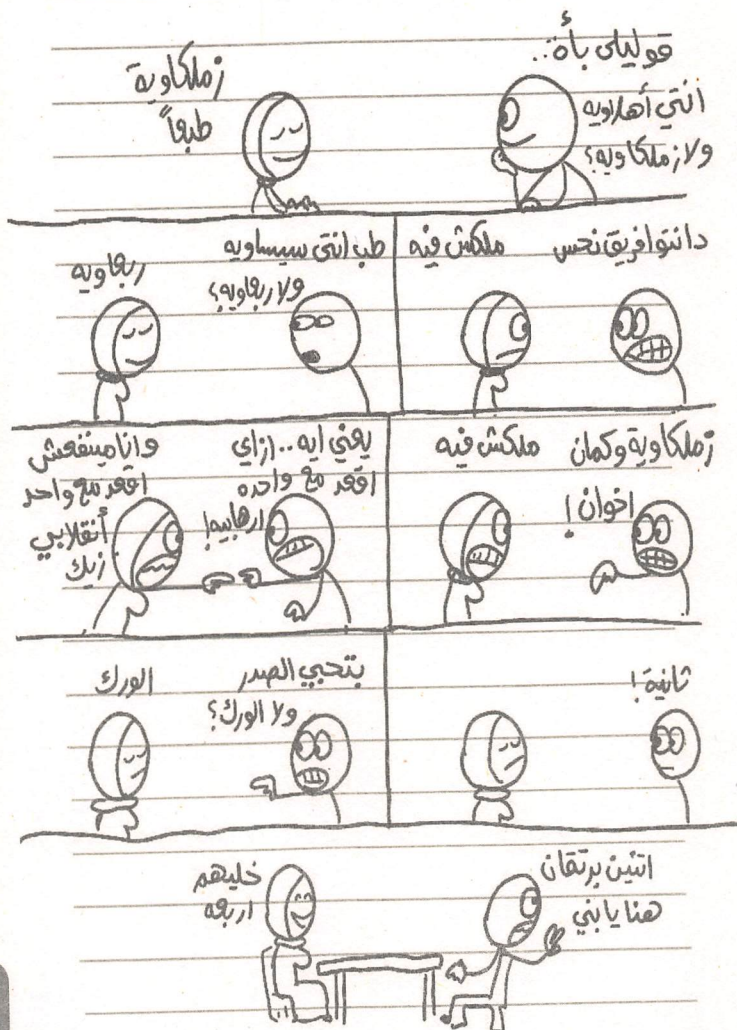 قوليلى بأة..
انتي أهلاويه
ولا زملكاويه؟
زملكاوية
طبعاً
دانتوا فريق نحس
ملكش فيه
طب انتى سيساويه
ولا ربعاويه؟
ربعاويه
زملكاوية وكمان
اخوان!
ملكش فيه
يعني ايه.. ازاي
اقعد مع واحده
ارهابيه!
وانا مينفعش
اقعد مع واحد
أنقلابي
زيك
ثانية!
بتحبي الصدر
ولا الورك؟
الورك
اتنين برتقان
هنا يابني
خليهم
اربعه